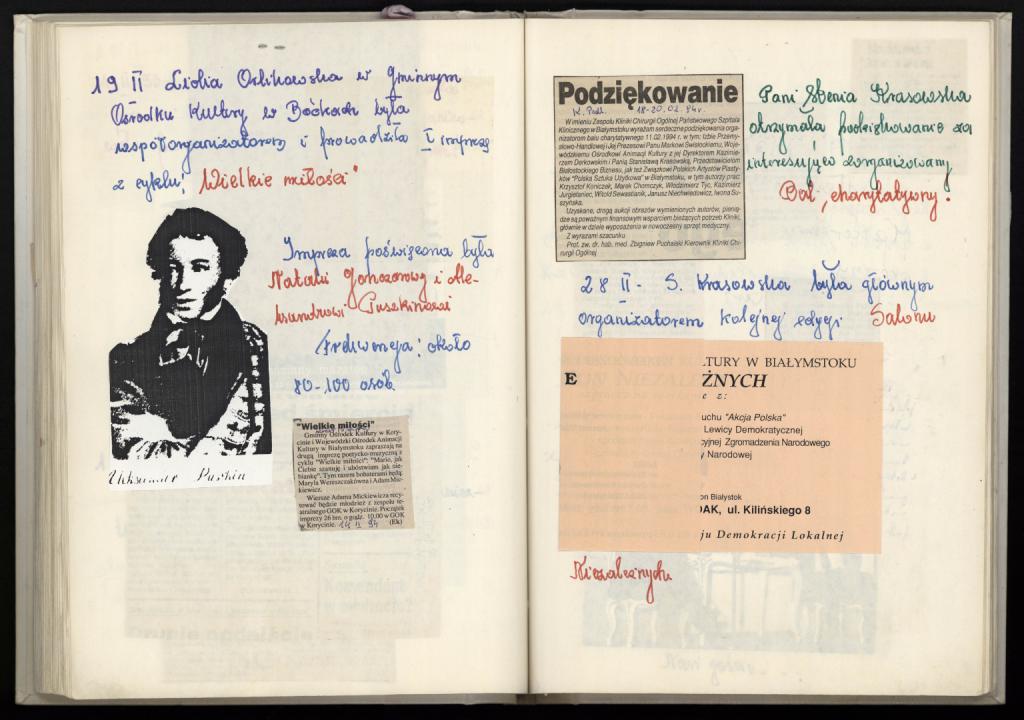 19 II Lidia Orlikowska w Gminnym
Ośrodku Kultury w Boćkach była
współorganizatorem i prowadziła I imprezę
z cyklu, "Wielkie miłości"
Impreza poświęcona była
Natalii Gonczarowej i Ale-
ksandrowi Puszkinowi
Frekwencja: około
80-100 osób
Aleksander Puskin
"Wielkie miłości"
Gminny Ośrodek Kultury w Kory-
cinie i Wojewódzki Ośrodek Animacji
Kultury w Białymstoku zapraszają na
drugą imprezę poetycko-muzyczną z
cyklu "Wielkie miłości": "Mario, jak
Ciebie szanuję i ubóstwiam jak nie-
biankę". Tym razem bohaterami będą
Maryla Wereszczakówna i Adam Mic-
kiewicz.
Wiersze Adama Mickiewicza recy-
tować będzie młodzież z zespołu te-
atralnego GOK w Korycinie. Początek
imprezy 26 bm. o godz. 10.00 w GOK
w Korycinie. 14 II 94 (Ek)
Podziękowanie
18-20.02.94r.
W imieniu Zespołu Kliniki Chirurgii Ogólnej Państwowego Szpitala
Klinicznego w Białymstoku wyrażam serdeczne podziękowania orga-
nizatorom balu charytatywnego 11.02.1994 r. w tym: Izbie Przemy-
słowo-Handlowej i Jej Prezesowi Panu Markowi Świsłockiemu, Woje-
wódzkiemu Ośrodkowi Animacji Kultury z jej Dyrektorem Kazimie-
rzem Derkowskim i Panią Stanisławą Krasowską, Przedstawicielom
Białostockiego Biznesu, jak też Związkowi Polskich Artystów Plasty-
ków "Polska Sztuka Użytkowa" w Białymstoku, w tym autorzy prac
Krzysztof Koniczek, Marek Chomczyk, Włodzimierz Tyc, Kazimierz
Jurgielaniec, Witold Sewastianik, Janusz Niechwiedowicz, Iwona Su-
szyńska.
Uzyskane, drogą aukcji obrazów wymienionych autorów, pienią-
dze są poważnym finansowym wsparciem bieżących potrzeb Kliniki,
głównie w dziele wyposażenia w nowoczesny sprzęt medyczny.
Z wyrazami szacunku
Prof. zw. dr. hab. med. Zbigniew Puchalski Kierownik Kliniki Chi-
rurgii Ogólnej
Pani Stenia Krasowska
otrzymała podziękowanie za
interesująco zorganizowany
Bal, charytatywny.
28 II - S. Krasowska była głównym
organizatorem kolejnej edycji Salonu
E
.TURY W BIAŁYMSTOKU
ŻNYCH
e z:
uchu "Akcja Polska"
Lewicy Demokratycznej
cyjnej Zgromadzenia Narodowego
Narodowej
on Białystok
DAK, ul. Kilińskiego 8
ju Demokracji Lokalnej
Niezależnych